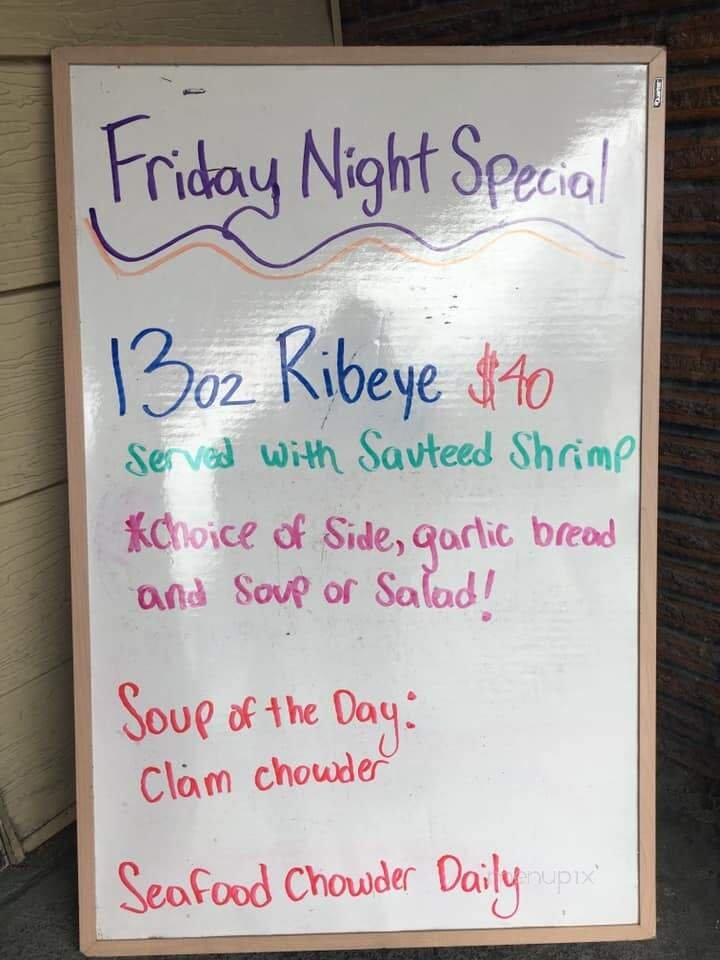 Friday Night Special
13oz Ribeye $40
Served with Sauteed Shrimp
*Choice of Side, garlic bread
and Soup or Salad!
Soup of the Day:
Clam chowder
Seafood Chowder Daily
menupix